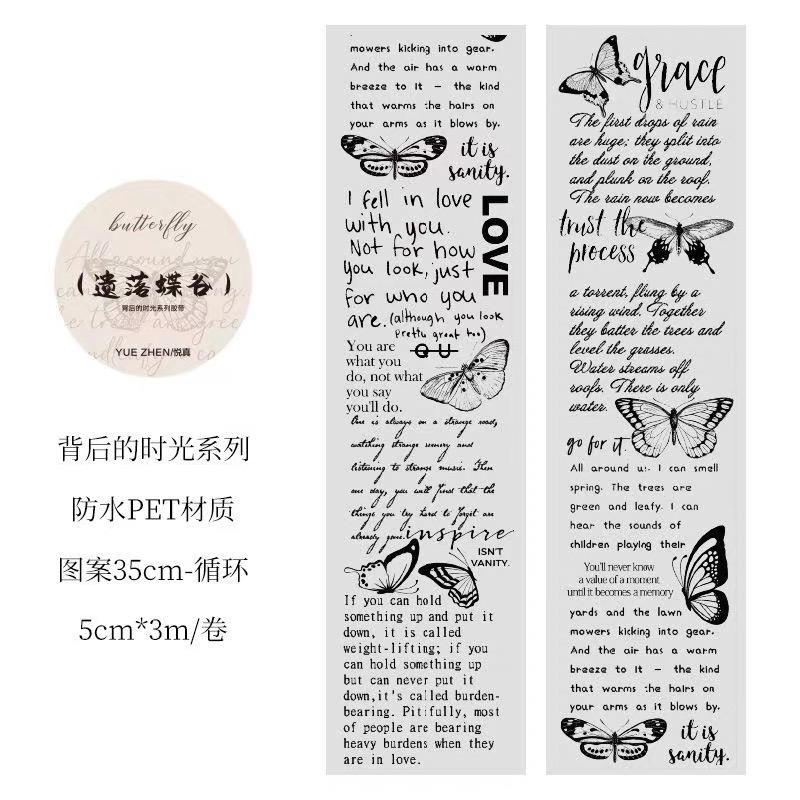 butterfly
All around you
(遗落蝶谷)
背后的时光系列胶带
YUE ZHEN/悦真
背后的时光系列
防水PET材质
图案35cm-循环
5cm*3m/卷
mowers kicking into gear.
And the air has a warm
breeze to it – the kind
that warms the hairs on
your arms as it blows by.
it is
sanity.
I fell in love
with you.
Not for how
you look, just
for who you
are. (although you look
pretty great too)
LOVE
QU
You are
what you
do, not what
you say
you'll do.
One is always on a strange road,
watching strange scenery and
listening to strange music. Then
one day, you will find that the
things you try hard to forget are
already gone.
inspire
ISN'T
VANITY.
If you can hold
something up and put it
down, it is called
weight-lifting; if you
can hold something up
but can never put it
down,it's called burden-
bearing. Pitifully, most
of people are bearing
heavy burdens when they
are in love.
grace
& HUSTLE
The first drops of rain
are huge; they split into
the dust on the ground,
and plunk on the roof.
The rain now becomes
trust the
process
a torrent, flung by a
rising wind. Together
they batter the trees and
level the grasses.
Water streams off
roofs. There is only
water.
go for it.
All around us. I can smell
spring. The trees are
green and leafy. I can
hear the sounds of
children playing their
You'll never know
a value of a moment
until it becomes a memory
yards and the lawn
mowers kicking into gear.
And the air has a warm
breeze to it – the kind
that warms the hairs on
your arms as it blows by.
it is
sanity.